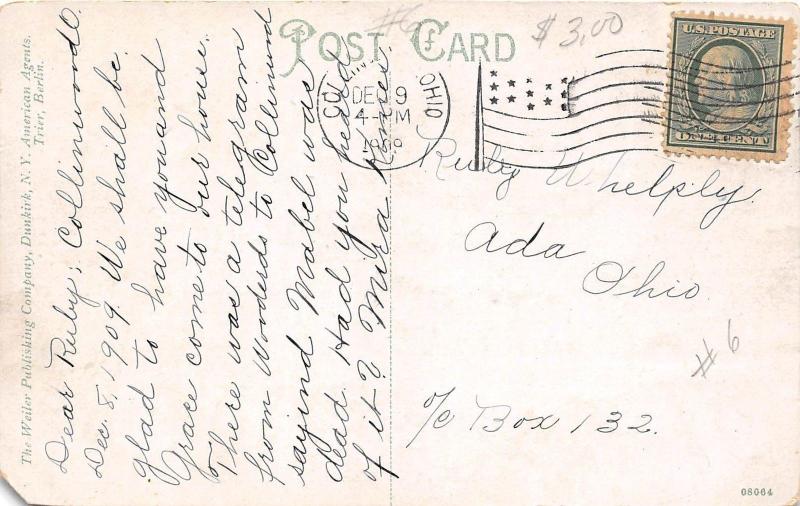 POST CARD
The Weiler Publishing Company, Dunkirk, N. Y. American Agents.
Trier, Berlin.
#6
$3.00
DEC 9
4-PM
OHIO
U.S. POSTAGE
ONE CENT
Collinwood O.
Dear Ruby;
Dec. 8, 1909. We shall be
glad to have you and
Grace come to our house.
There was a telegram
from Wooderds to Collinwood
sayind Mabel was
dead. Had you heard
of it? Mira
Ruby Whelply.
Ada
Ohio.
#6
c/o Box 132.
08064